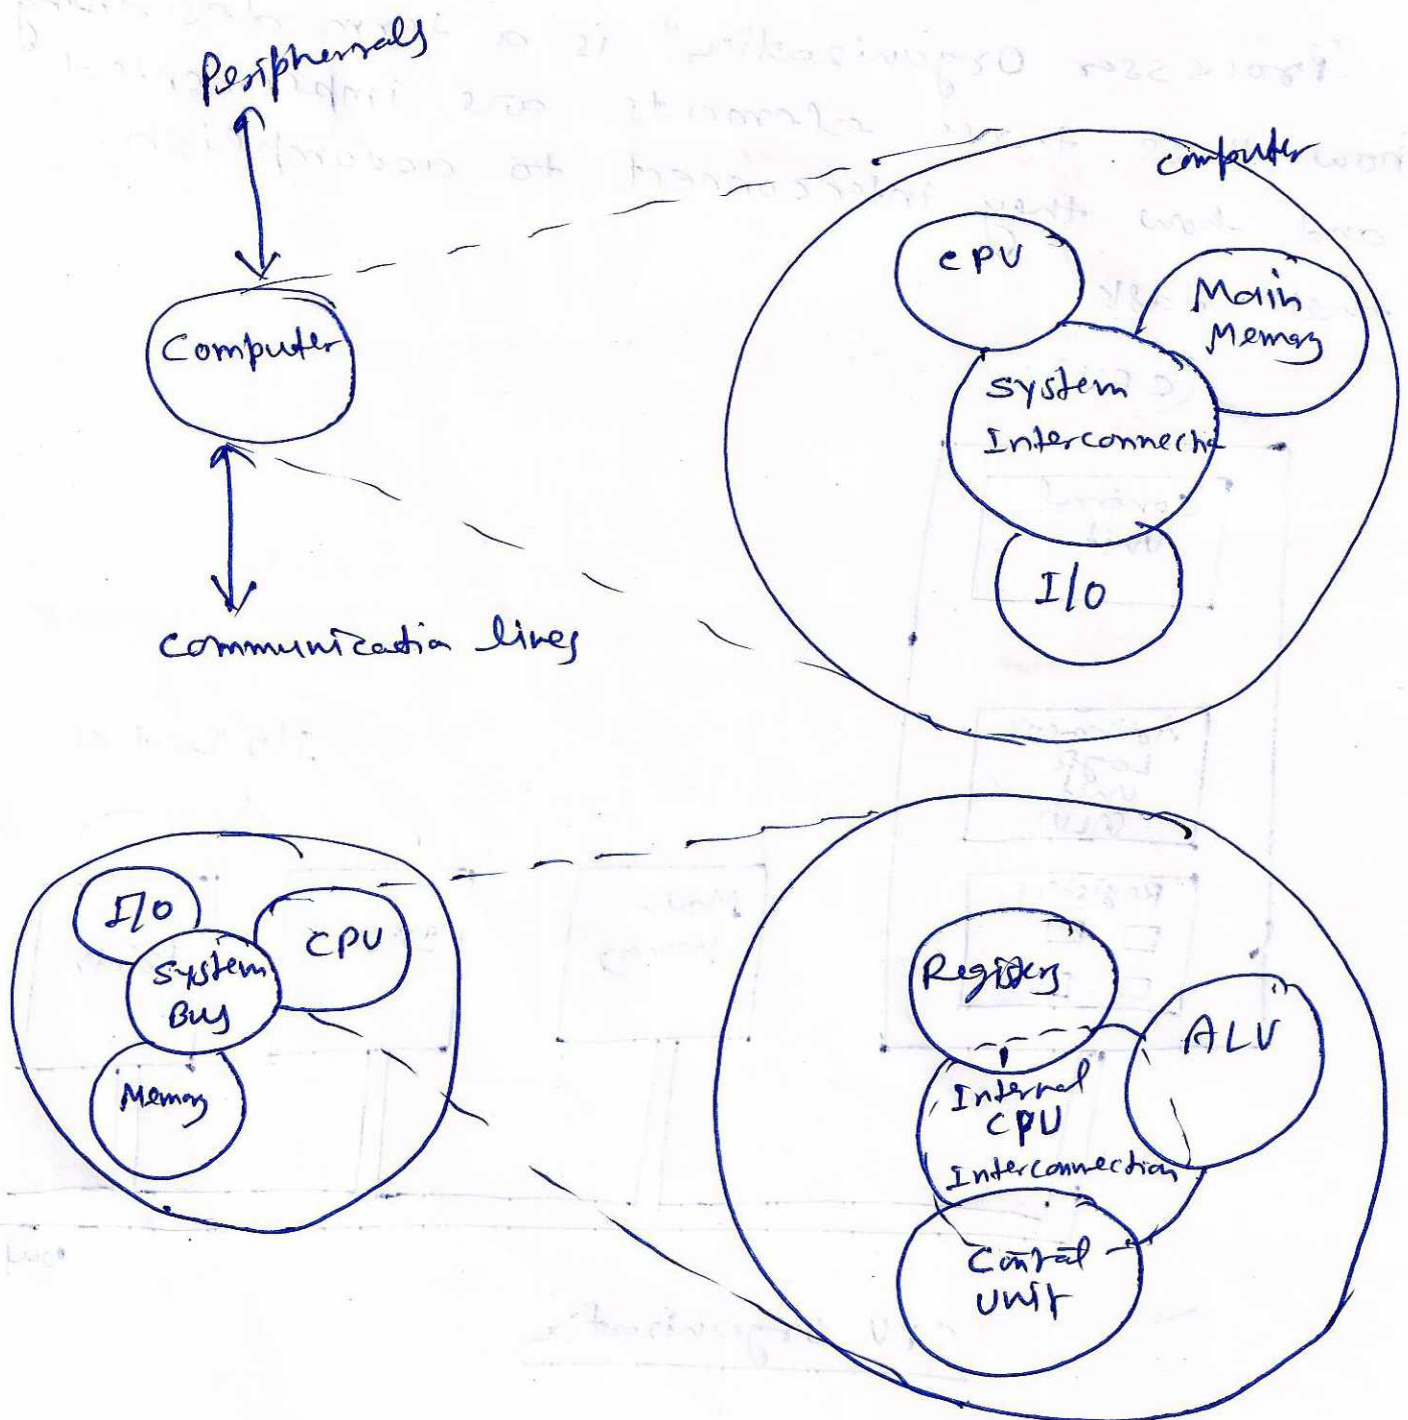 Peripherals
Computer
Communication lines
Computer
CPU
Main
Memory
System
Interconnectio
I/O
I/O
CPU
System
Bus
Memory
Registers
ALU
Internal
CPU
Interconnection
Control
Unit